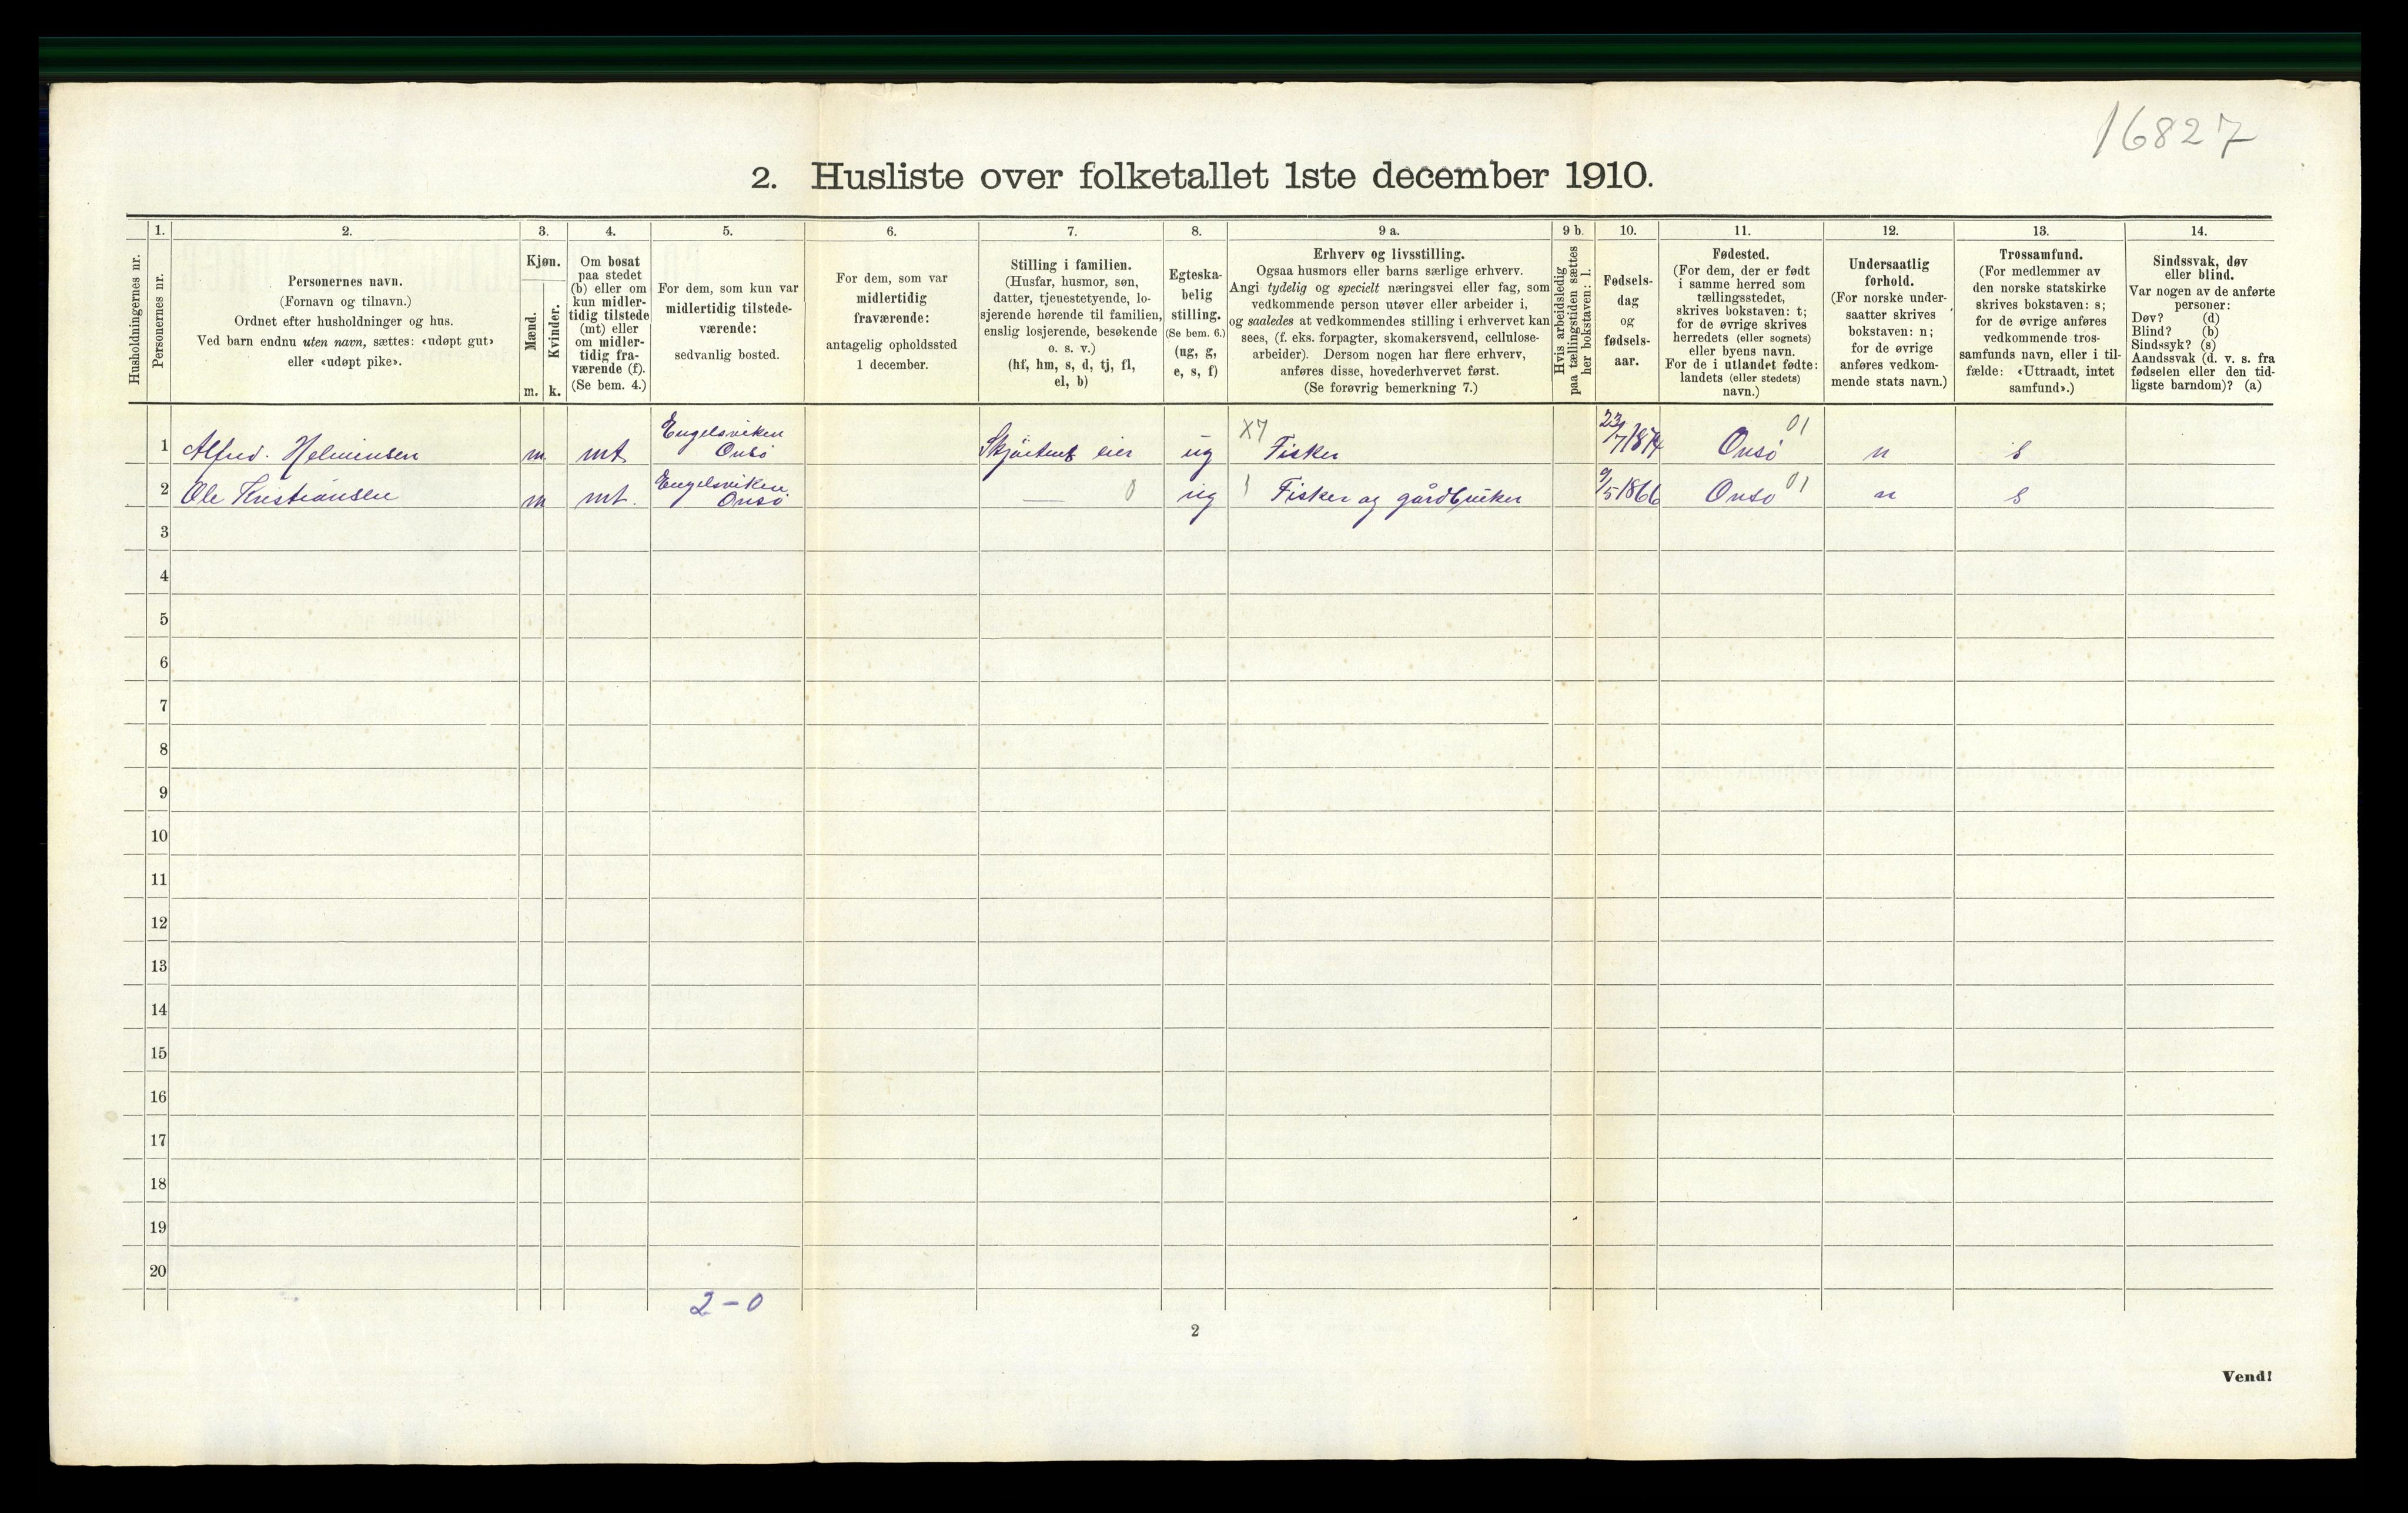 16827
2. Husliste over folketallet 1ste december 1910.
1. 2. 3. 4. 5. 6. 7. 8. 9 a. 9 b. 10. 11. 12. 13. 14.
Husholdningernes nr.
Personernes nr.
Personernes navn.
(Fornavn og tilnavn.)
Ordnet efter husholdninger og hus.
Ved barn endnu uten navn, sættes: «udøpt gut»
eller «udøpt pike».
Kjøn.
Mænd.
Kvinder.
m. k.
Om bosat
paa stedet
(b) eller om
kun midler-
tidig tilstede
(mt) eller
om midler-
tidig fra-
værende (f).
(Se bem. 4.)
For dem, som kun var
midlertidig tilstede-
værende:
sedvanlig bosted.
For dem, som var
midlertidig
fraværende:
antagelig opholdssted
1 december.
Stilling i familien.
(Husfar, husmor, søn,
datter, tjenestetyende, lo-
sjerende hørende til familien,
enslig losjerende, besøkende
o. s. v.)
(hf, hm, s, d, tj, fl,
el, b)
Egteska-
belig
stilling.
(Se bem. 6.)
(ug, g,
e, s, f)
Erhverv og livsstilling.
Ogsaa husmors eller barns særlige erhverv.
Angi tydelig og specielt næringsvei eller fag, som
vedkommende person utøver eller arbeider i,
og saaledes at vedkommendes stilling i erhvervet kan
sees, (f. eks. forpagter, skomakersvend, cellulose-
arbeider). Dersom nogen har flere erhverv,
anføres disse, hovederhvervet først.
(Se forøvrig bemerkning 7.)
Hvis arbeidsledig
paa tællingstiden sættes
her bokstaven: l.
Fødsels-
dag
og
fødsels-
aar.
Fødested.
(For dem, der er født
i samme herred som
tællingsstedet,
skrives bokstaven: t;
for de øvrige skrives
herredets (eller sognets)
eller byens navn.
For de i utlandet fødte:
landets (eller stedets)
navn.)
Undersaatlig
forhold.
(For norske under-
saatter skrives
bokstaven: n;
for de øvrige
anføres vedkom-
mende stats navn.)
Trossamfund.
(For medlemmer av
den norske statskirke
skrives bokstaven: s;
for de øvrige anføres
vedkommende tros-
samfunds navn, eller i til-
fælde: «Uttraadt, intet
samfund».)
Sindssvak, døv
eller blind.
Var nogen av de anførte
personer:
Døv? (d)
Blind? (b)
Sindssyk? (s)
Aandssvak (d. v. s. fra
fødselen eller den tid-
ligste barndom)? (a)
1 Alfred. Helminsen m mt Engelsviken Onsö eier ug X7 Fisker 23/7 1874 Onsö 01 n s
2 Ole Kristiansen m mt. Engelsviken Onsö — 0 ug 1 Fisker og gårdbruker 9/5 1866 Onsö 01 n s
3
4
5
6
7
8
9
10
11
12
13
14
15
16
17
18
19
20
2 – 0
2
Vend!